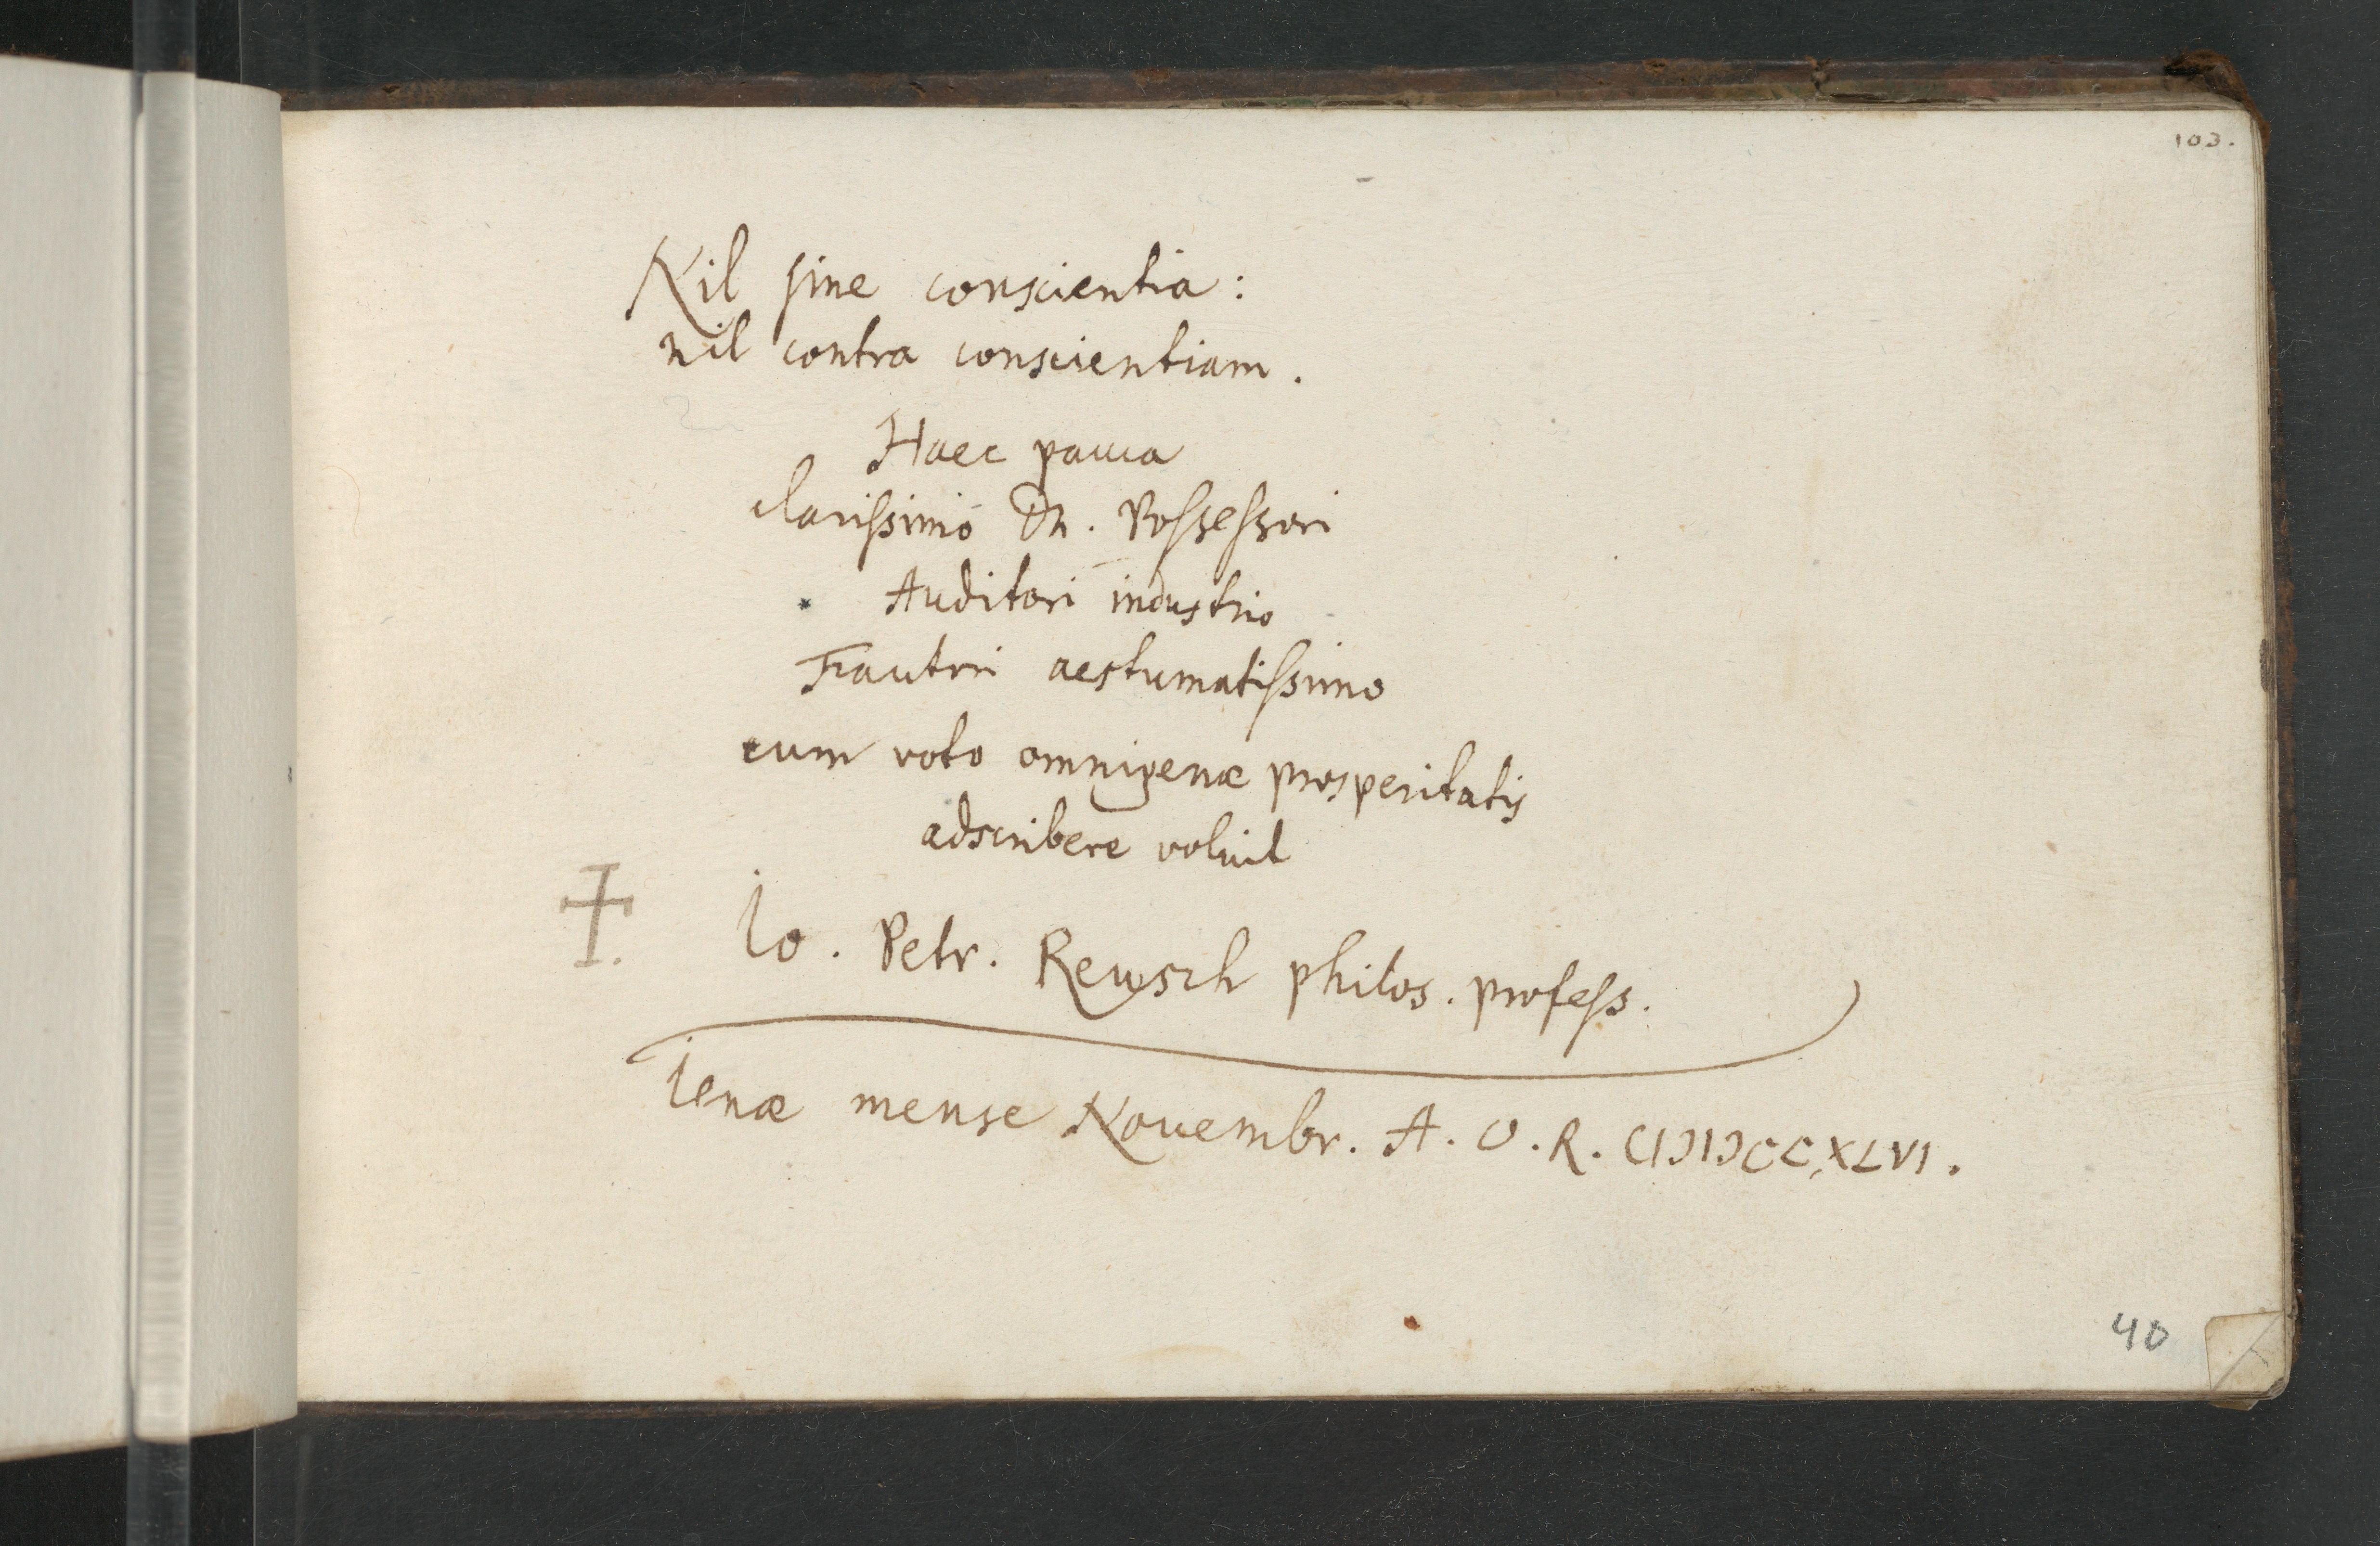 103.
Nil sine conscientia:
nil contra conscientiam.
Haec pauca
clarissimo Dn. Possessori
Auditori industrio
Fautori aestumatissimo
cum voto omnigenae prosperitatis
adscribere voluit
Io. Petr. Reusch philos. profess.
Ienae mense Nouembr. A. O. R. CIƆIƆCCXLVI.
40